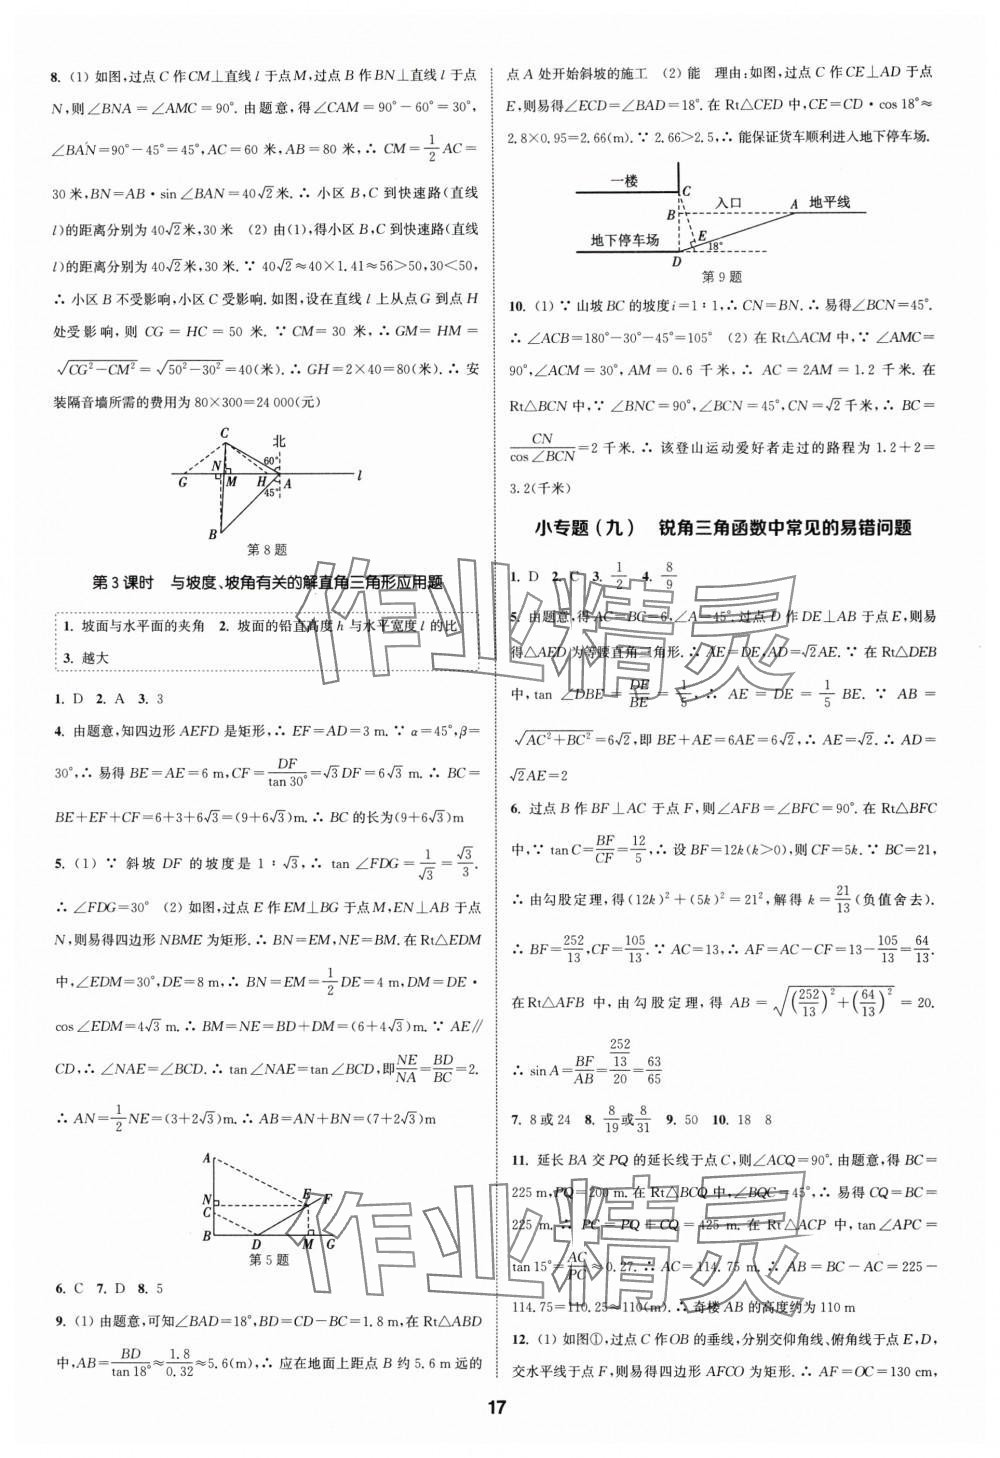 8. (1) 如图,过点 C 作 CM⊥直线 l 于点 M,过点 B 作 BN⊥直线 l 于点
N,则∠BNA=∠AMC=90°. 由题意,得∠CAM=90°-60°=30°,
∠BAN=90°-45°=45°,AC=60 米,AB=80 米,∴ CM=1/2 AC=
30 米,BN=AB·sin∠BAN=40√2米.∴ 小区 B,C 到快速路(直线
l)的距离分别为 40√2米,30 米 (2) 由(1),得小区 B,C 到快速路(直线
l)的距离分别为 40√2米,30 米.∵ 40√2≈40×1.41≈56>50,30<50,
∴ 小区 B 不受影响,小区 C 受影响.如图,设在直线 l 上从点 G 到点 H
处受影响,则 CG=HC=50 米.∵ CM=30 米,∴ GM=HM=
√(CG²-CM²)=√(50²-30²)=40(米).∴ GH=2×40=80(米).∴ 安
装隔音墙所需的费用为 80×300=24 000(元)
北
C
60°
G
N
M
H
A
l
45°
B
第 8 题
第 3 课时 与坡度、坡角有关的解直角三角形应用题
1. 坡面与水平面的夹角 2. 坡面的铅直高度 h 与水平宽度 l 的比
3. 越大
1. D 2. A 3. 3
4. 由题意,知四边形 AEFD 是矩形,∴ EF=AD=3 m.∵ α=45°,β=
30°,∴ 易得 BE=AE=6 m,CF=DF/tan 30°=√3DF=6√3 m.∴ BC=
BE+EF+CF=6+3+6√3=(9+6√3)m.∴ BC 的长为(9+6√3)m
5. (1) ∵ 斜坡 DF 的坡度是 1∶√3,∴ tan∠FDG=1/√3=√3/3.
∴ ∠FDG=30° (2) 如图,过点 E 作 EM⊥BG 于点 M,EN⊥AB 于点
N,则易得四边形 NBME 为矩形.∴ BN=EM,NE=BM.在 Rt△EDM
中,∠EDM=30°,DE=8 m,∴ BN=EM=1/2 DE=4 m,DM=DE·
cos∠EDM=4√3 m.∴ BM=NE=BD+DM=(6+4√3)m.∵ AE∥
CD,∴ ∠NAE=∠BCD.∴ tan∠NAE=tan∠BCD,即NE/NA=BD/BC=2.
∴ AN=1/2 NE=(3+2√3)m.∴ AB=AN+BN=(7+2√3)m
A
N
C
B
D
E
F
M
G
第 5 题
6. C 7. D 8. 5
9. (1) 由题意,可知∠BAD=18°,BD=CD-BC=1.8 m.在 Rt△ABD
中,AB=BD/tan 18°≈1.8/0.32≈5.6(m),∴ 应在地面上距点 B 约 5.6 m 远的
点 A 处开始斜坡的施工 (2) 能 理由:如图,过点 C 作 CE⊥AD 于点
E,则易得∠ECD=∠BAD=18°.在 Rt△CED 中,CE=CD·cos 18°≈
2.8×0.95=2.66(m).∵ 2.66>2.5,∴ 能保证货车顺利进入地下停车场.
一楼
C
B
入口
A
地平线
地下停车场
E
18°
D
第 9 题
10. (1) ∵ 山坡 BC 的坡度 i=1∶1,∴ CN=BN.∴ 易得∠BCN=45°.
∴ ∠ACB=180°-30°-45°=105° (2) 在 Rt△ACM 中,∵ ∠AMC=
90°,∠ACM=30°,AM=0.6 千米,∴ AC=2AM=1.2 千米.在
Rt△BCN 中,∵ ∠BNC=90°,∠BCN=45°,CN=√2千米,∴ BC=
CN/cos∠BCN=2 千米.∴ 该登山运动爱好者走过的路程为 1.2+2=
3.2(千米)
小专题(九) 锐角三角函数中常见的易错问题
1. D 2. C 3. 1/2 4. 8/9
5. 由题意,得 AC=BC=6,∠A=45°.过点 D 作 DE⊥AB 于点 E,则易
得△AED 为等腰直角三角形.∴ AE=DE,AD=√2AE.∵ 在 Rt△DEB
中,tan∠DBE=DE/BE=1/5,∴ AE=DE=1/5 BE.∵ AB=
√(AC²+BC²)=6√2,即 BE+AE=6AE=6√2,∴ AE=√2.∴ AD=
√2AE=2
6. 过点 B 作 BF⊥AC 于点 F,则∠AFB=∠BFC=90°.在 Rt△BFC
中,∵ tan C=BF/CF=12/5,∴ 设 BF=12k(k>0),则 CF=5k.∵ BC=21,
∴ 由勾股定理,得(12k)²+(5k)²=21²,解得 k=21/13(负值舍去).
∴ BF=252/13,CF=105/13.∵ AC=13,∴ AF=AC-CF=13-105/13=64/13.
在 Rt△AFB 中,由勾股定理,得 AB=√((252/13)²+(64/13)²)=20.
∴ sin A=BF/AB=(252/13)/20=63/65
7. 8 或 24 8. 8/19或8/31 9. 50 10. 18 8
11. 延长 BA 交 PQ 的延长线于点 C,则∠ACQ=90°.由题意,得 BC=
225 m,PQ=200 m.在 Rt△BCQ 中,∠BQC=45°,∴ 易得 CQ=BC=
225 m.∴ PC=PQ+CQ=425 m.在 Rt△ACP 中,tan∠APC=
tan 15°=AC/PC≈0.27.∴ AC=114.75 m.∴ AB=BC-AC=225-
114.75=110.25≈110(m).∴ 奇楼 AB 的高度约为 110 m
12. (1) 如图①,过点 C 作 OB 的垂线,分别交仰角线、俯角线于点 E,D,
交水平线于点 F,则易得四边形 AFCO 为矩形.∴ AF=OC=130 cm,
17
作业精灵
作业精灵